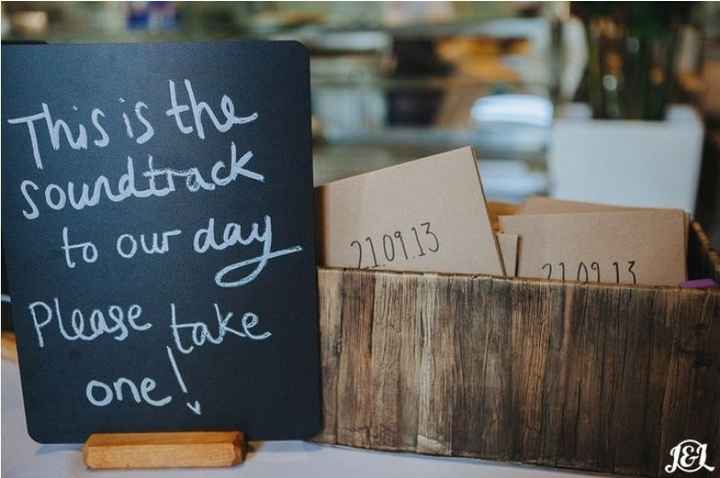 This is the
soundtrack
to our day
Please take
one!
21.09.13
21.09.13
J&L